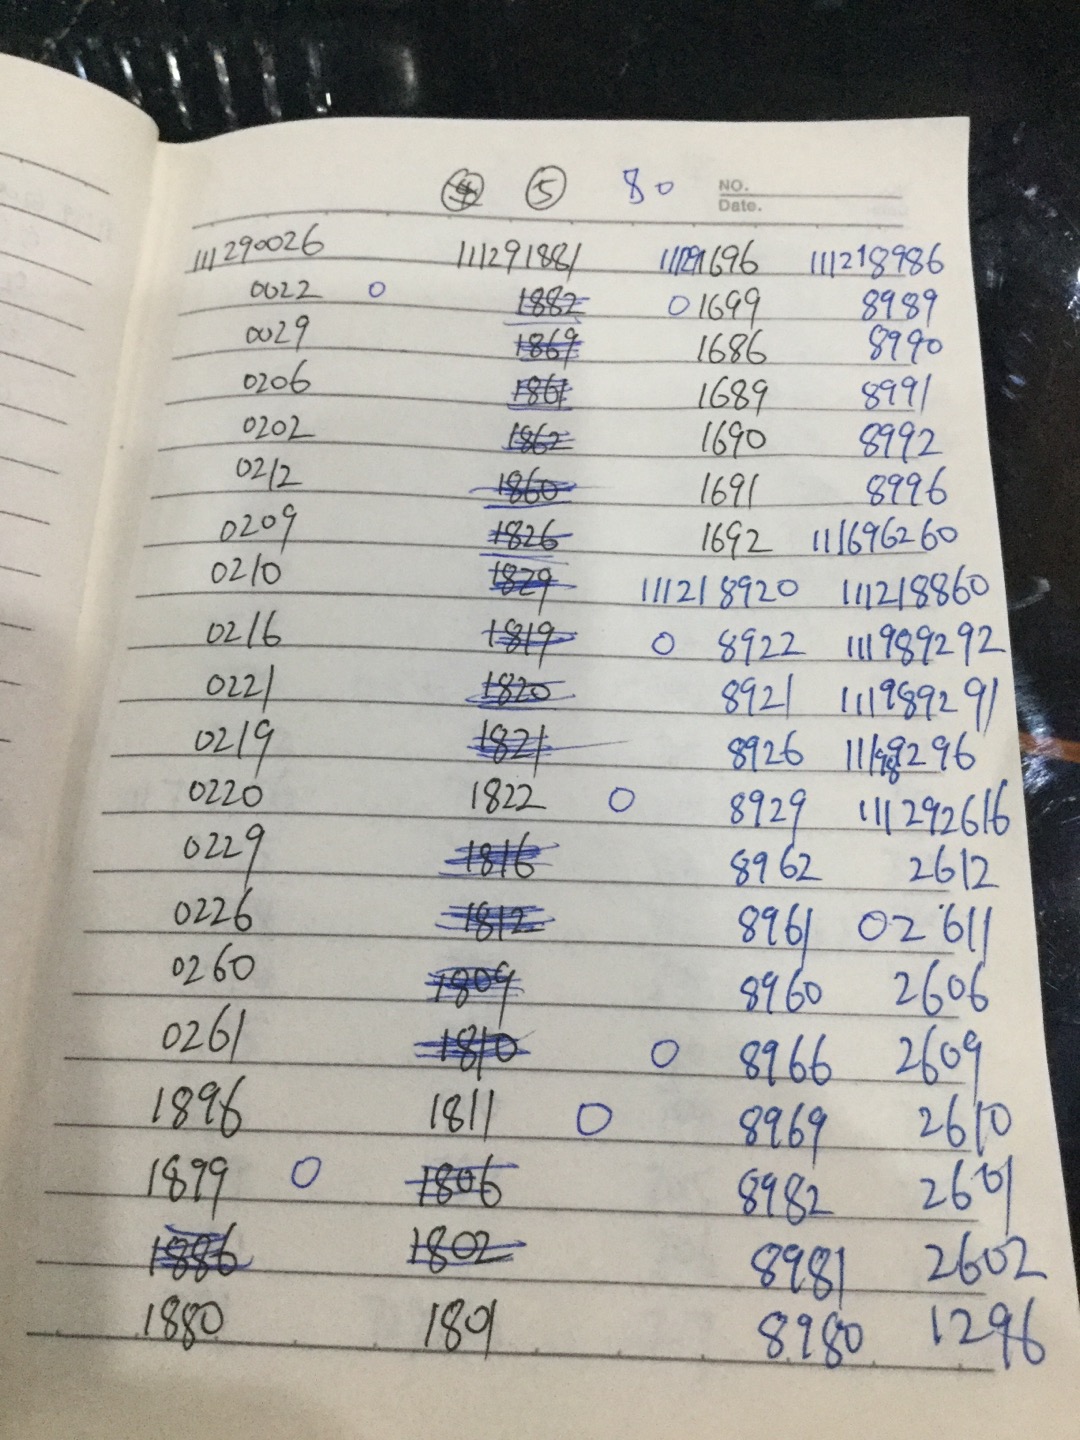 ④ ⑤ 80 NO.
Date.
111290026 111291881 111291696 111218986
0022 O 1882 O 1699 8989
0029 1869 1686 8990
0206 1861 1689 8991
0202 1862 1690 8992
0212 1860 1691 8996
0209 1826 1692 111696260
0210 1829 111218920 111218860
0216 1819 O 8922 111989292
0221 1820 8921 111989291
0219 1821 8926 111989296
0220 1822 O 8929 111292616
0229 1816 8962 2612
0226 1812 8961 02611
0260 1809 8960 2606
0261 1810 O 8966 2609
1896 1811 O 8969 2610
1899 O 1806 8982 2601
1886 1802 8981 2602
1880 1801 8980 1296